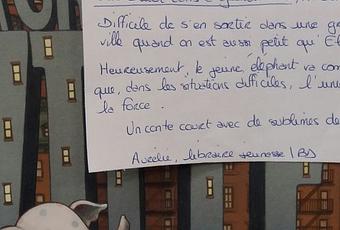 Difficile de s'en sortir dans une
ville quand on est aussi petit qu'
Heureusement, le jeune éléphant va
que, dans les situations difficiles, l'
la force.
Un conte court avec de sublimes
Aurélie, libraire jeunesse / BD